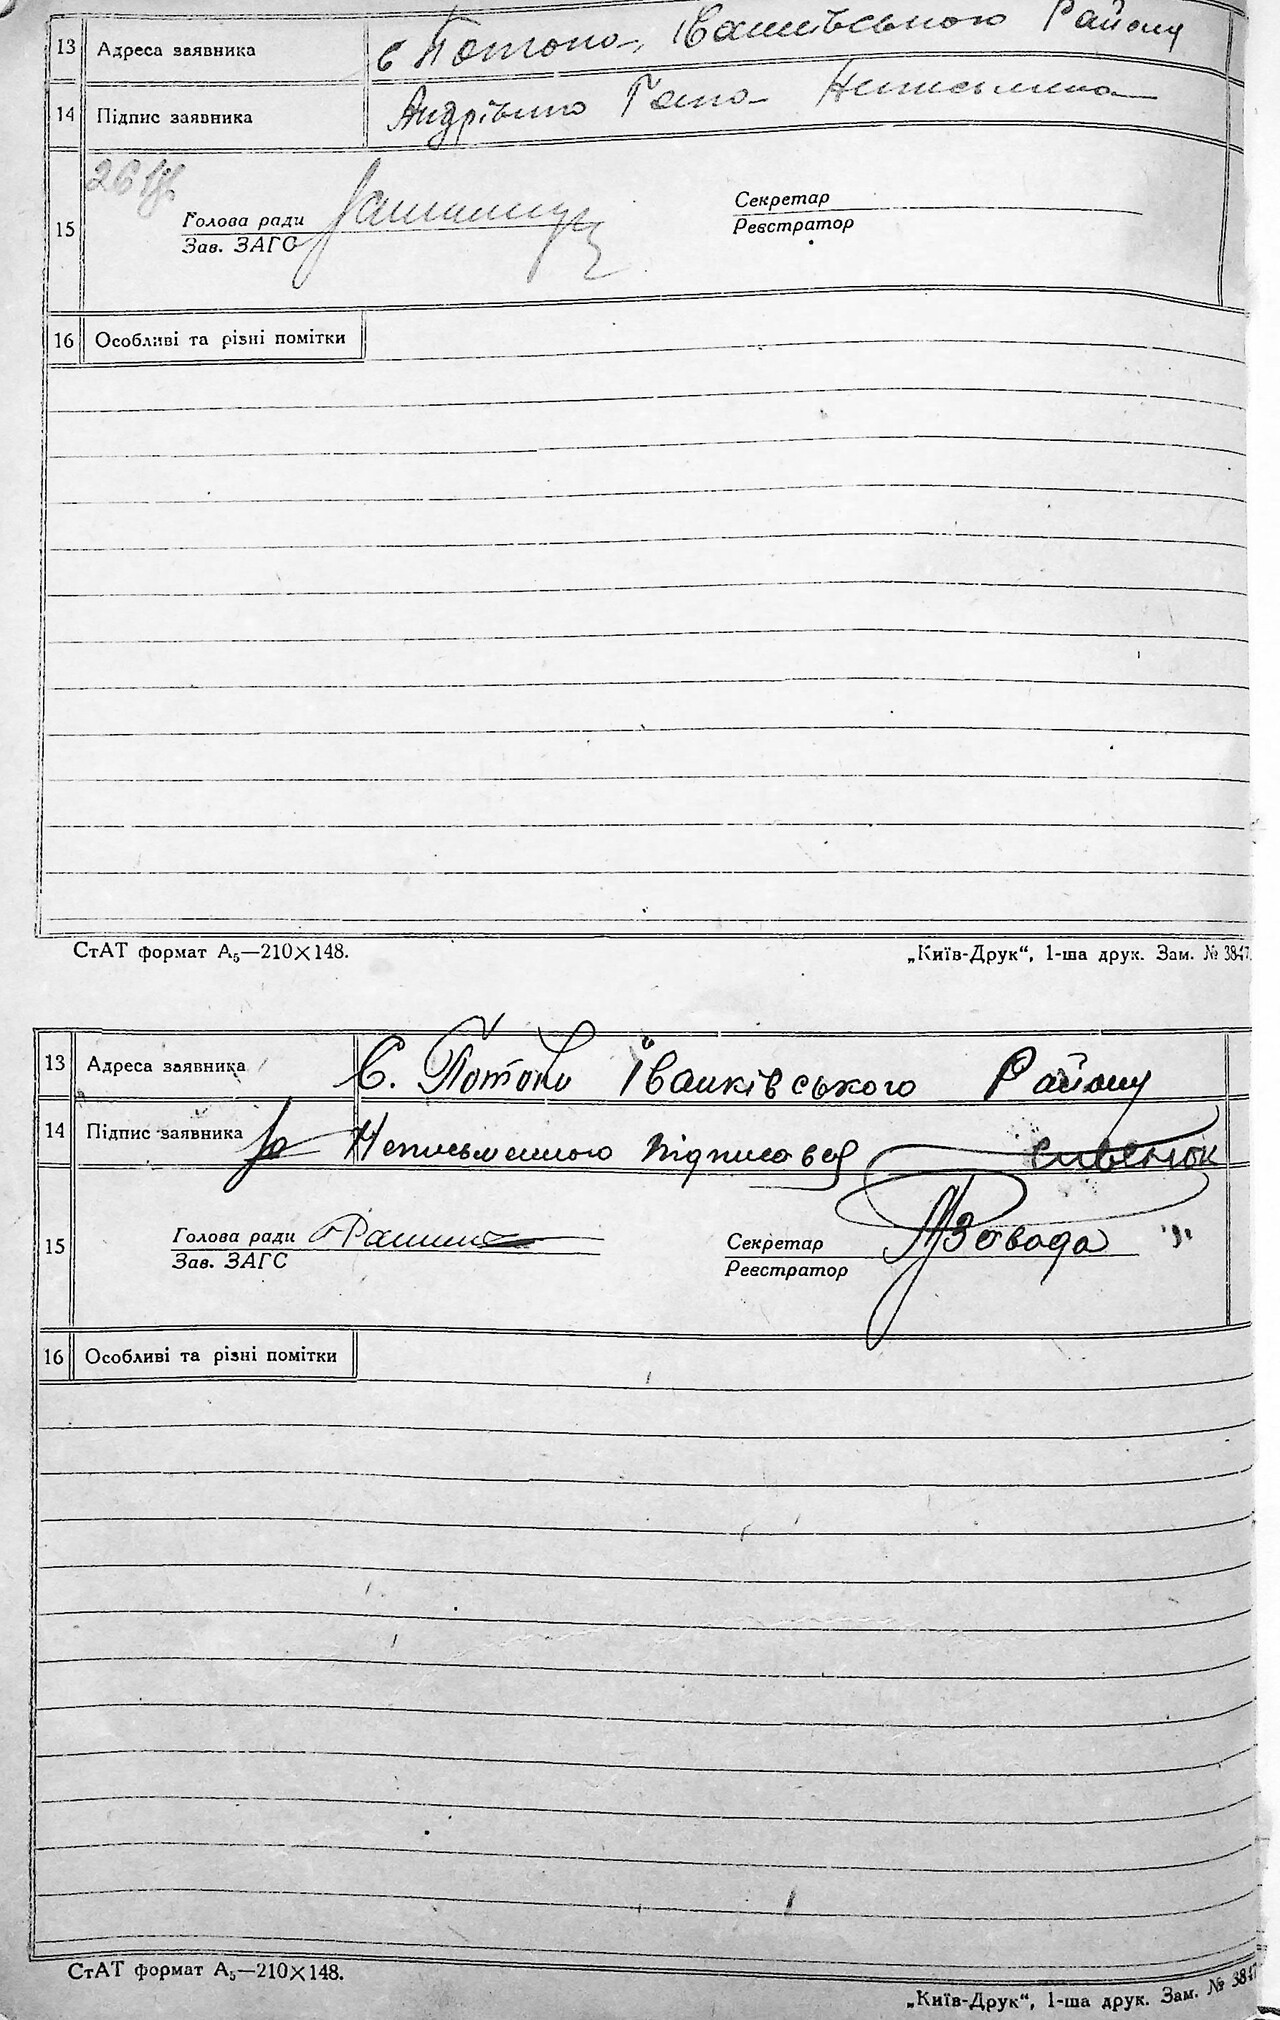 13 Адреса заявника с Потоки, Іванківського Району
14 Підпис заявника Андрієнко Неписьмена
15
Голова ради
Зав. ЗАГС
Секретар
Реєстратор
16 Особливі та різні помітки
СтАТ формат А₅—210×148.
„Київ-Друк“, 1-ша друк. Зам. № 3847
13 Адреса заявника С. Потоки Іванківського Району
14 Підпис заявника За Неписьменного підписався
15
Голова ради
Зав. ЗАГС
Секретар Завода
Реєстратор
16 Особливі та різні помітки
СтАТ формат А₅—210×148.
„Київ-Друк“, 1-ша друк. Зам. № 3847